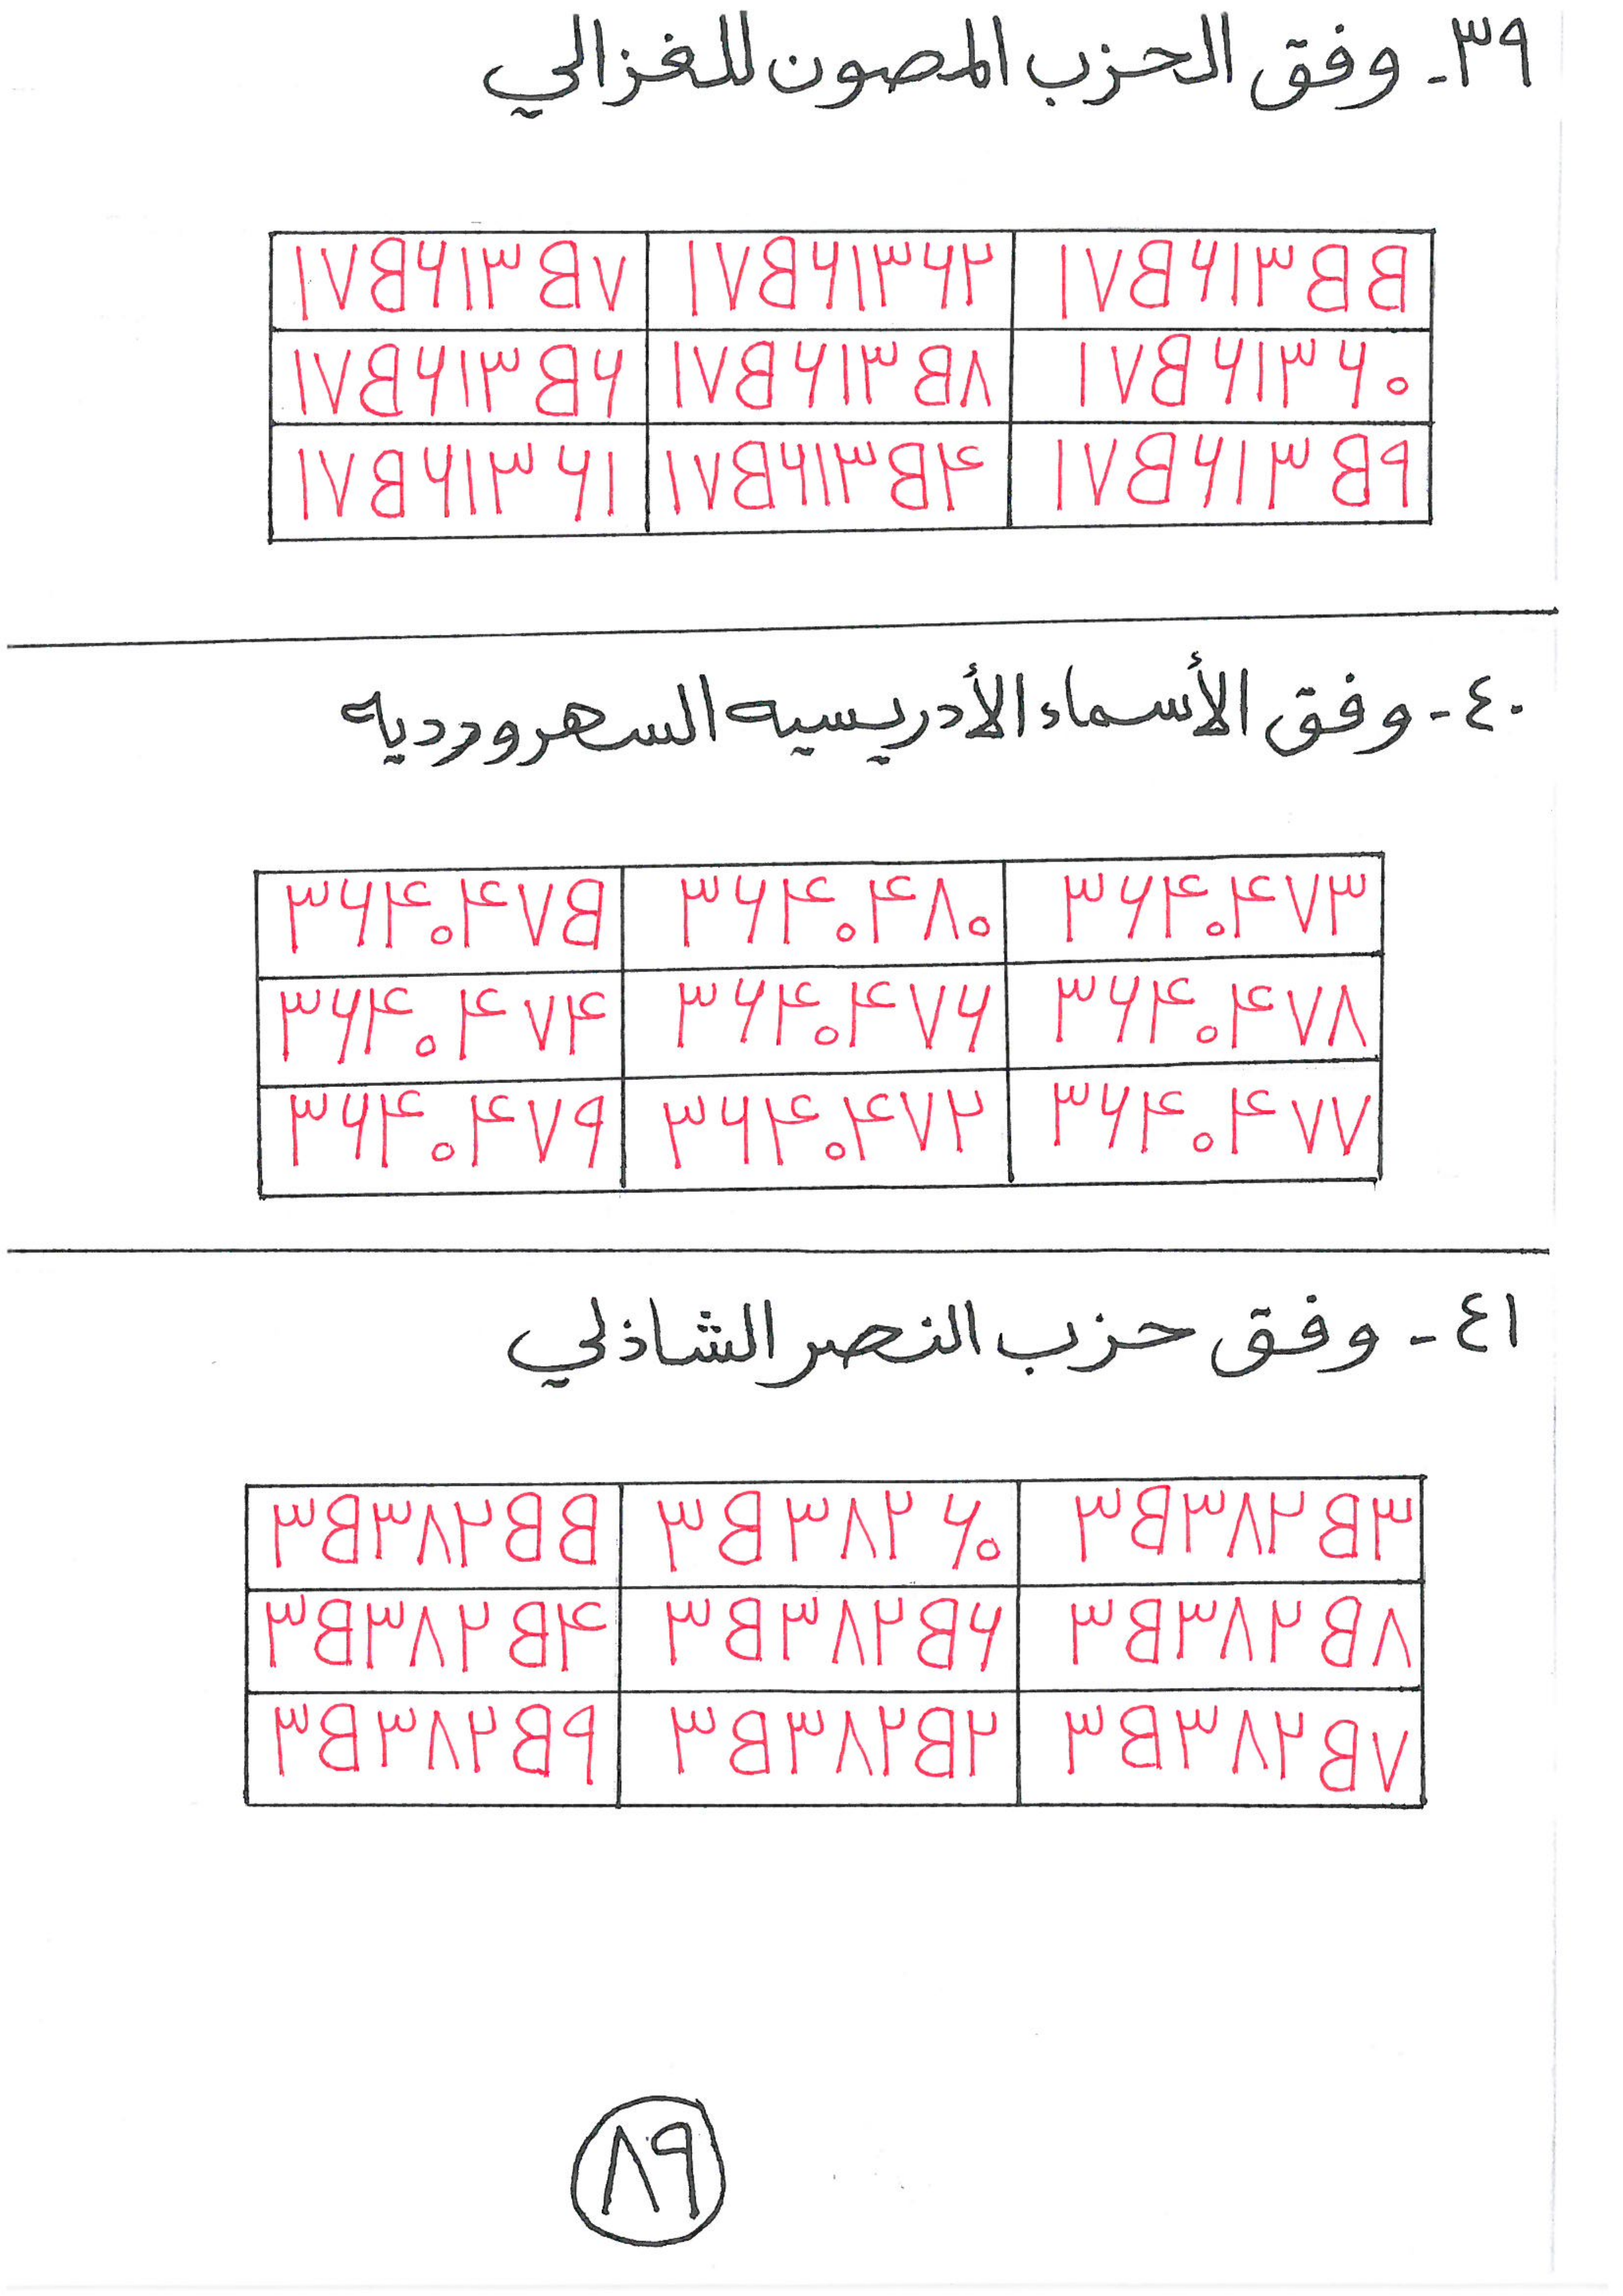 ٣٩- وفق الحزب المصون للغزالي
١٧٥٦١٣٥٥ ١٧٥٦١٣٦٢ ١٧٥٦١٣٥٧
١٧٥٦١٣٦٠ ١٧٥٦١٣٥٨ ١٧٥٦١٣٥٦
١٧٥٦١٣٥٩ ١٧٥٦١٣٥٤ ١٧٥٦١٣٦١
٤٠- وفق الأسماء الأدريسيه السهرورديه
٣٦٤٠٤٧٣ ٣٦٤٠٤٨٠ ٣٦٤٠٤٧٥
٣٦٤٠٤٧٨ ٣٦٤٠٤٧٦ ٣٦٤٠٤٧٤
٣٦٤٠٤٧٧ ٣٦٤٠٤٧٢ ٣٦٤٠٤٧٩
٤١- وفق حزب النصر الشاذلي
٣٥٣٨٢٥٣ ٣٥٣٨٢٦٠ ٣٥٣٨٢٥٥
٣٥٣٨٢٥٨ ٣٥٣٨٢٥٦ ٣٥٣٨٢٥٤
٣٥٣٨٢٥٧ ٣٥٣٨٢٥٢ ٣٥٣٨٢٥٩
٨٩